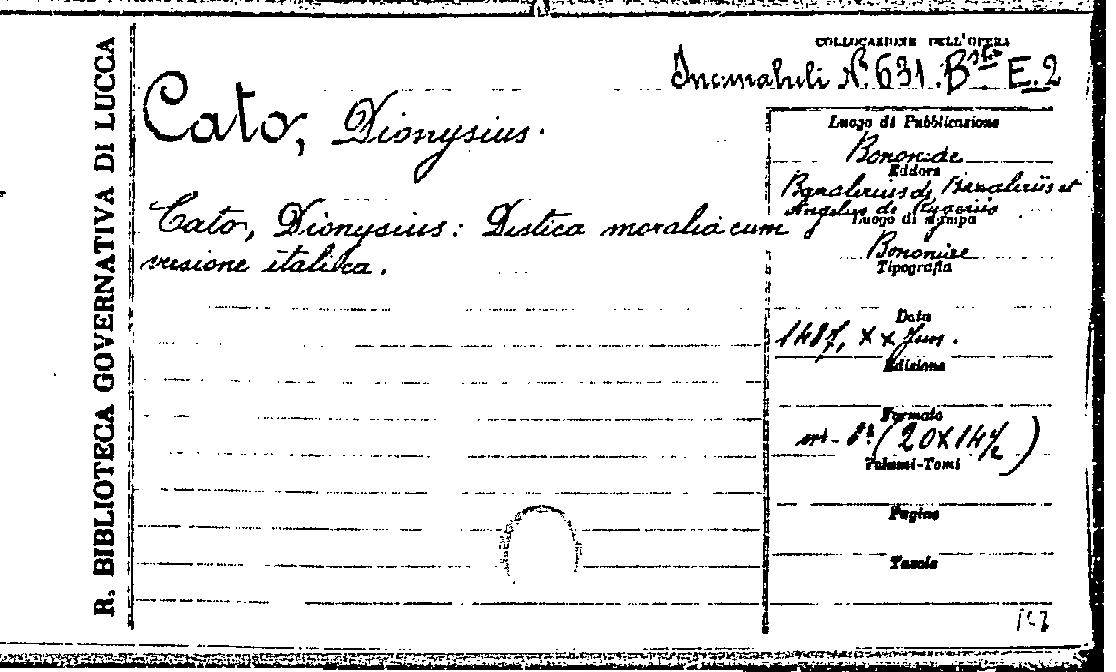 R. BIBLIOTECA GOVERNATIVA DI LUCCA
COLLOCAZIONE DELL'OPERA
Incunabuli N. 631. B.sta E.2
Cato, Dionysius.
Cato, Dionysius: Distica moralia cum
versione italica.
Luogo di Pubblicazione
Bononiae
Editore
de et
Angelus de
Luogo di Stampa
Bononiae
Tipografia
Data
1487, XX Jun.
Edizione
Formato
in-8º (20X14½)
Volumi-Tomi
Pagine
Tavole